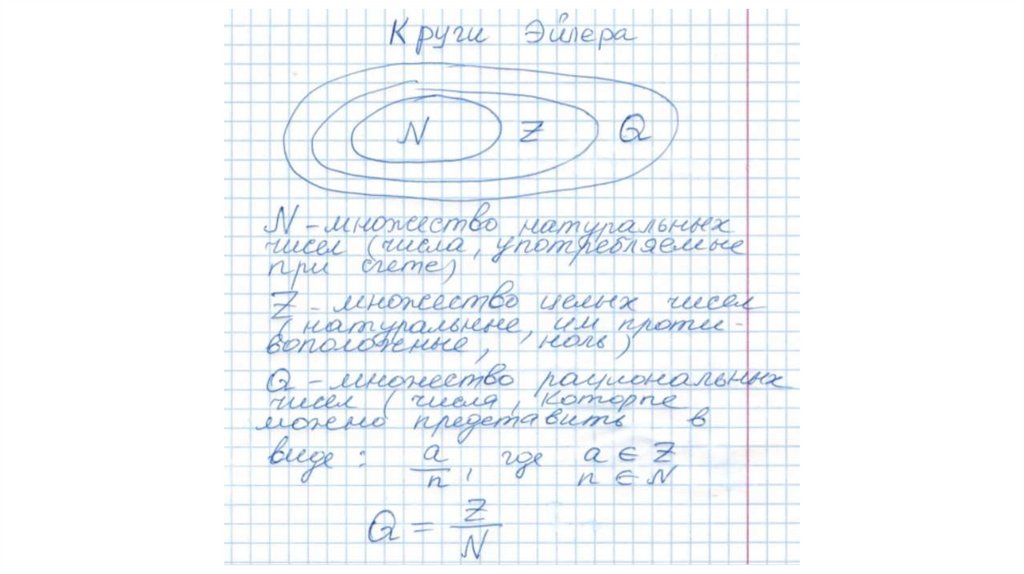 Круги Эйлера
N Z Q
N - множество натуральных
чисел (числа, употребляемые
при счете)
Z - множество целых чисел
(натуральные, им проти-
воположные, ноль)
Q - множество рациональных
чисел (числа, которпе
можно представить в
виде: a/n, где a ∈ Z
n ∈ N
Q = Z/N